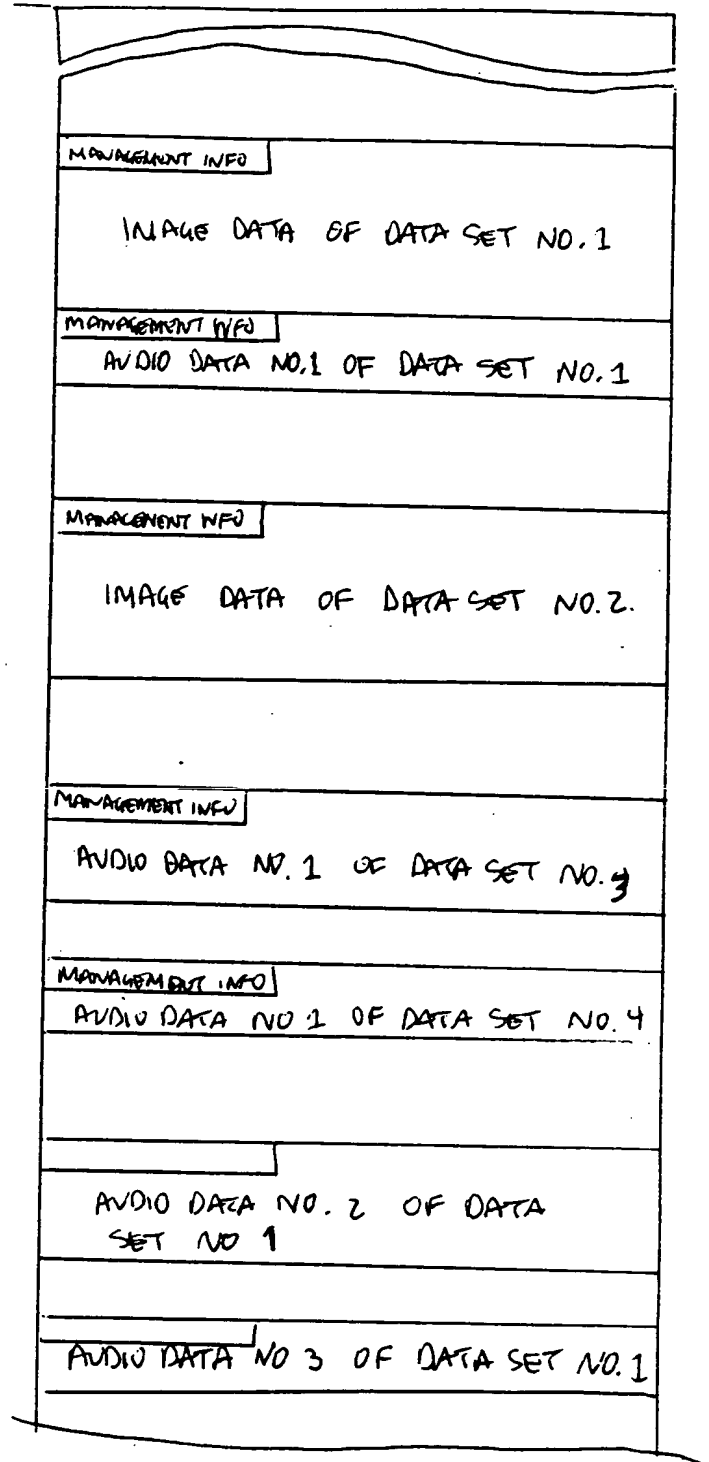 MANAGEMENT INFO
IMAGE DATA OF DATA SET NO. 1
MANAGEMENT INFO
AUDIO DATA NO. 1 OF DATA SET NO. 1
MANAGEMENT INFO
IMAGE DATA OF DATA SET NO. 2.
MANAGEMENT INFO
AUDIO DATA NO. 1 OF DATA SET NO. 3
MANAGEMENT INFO
AUDIO DATA NO 1 OF DATA SET NO. 4
AUDIO DATA NO. 2 OF DATA
SET NO 1
AUDIO DATA NO 3 OF DATA SET NO. 1